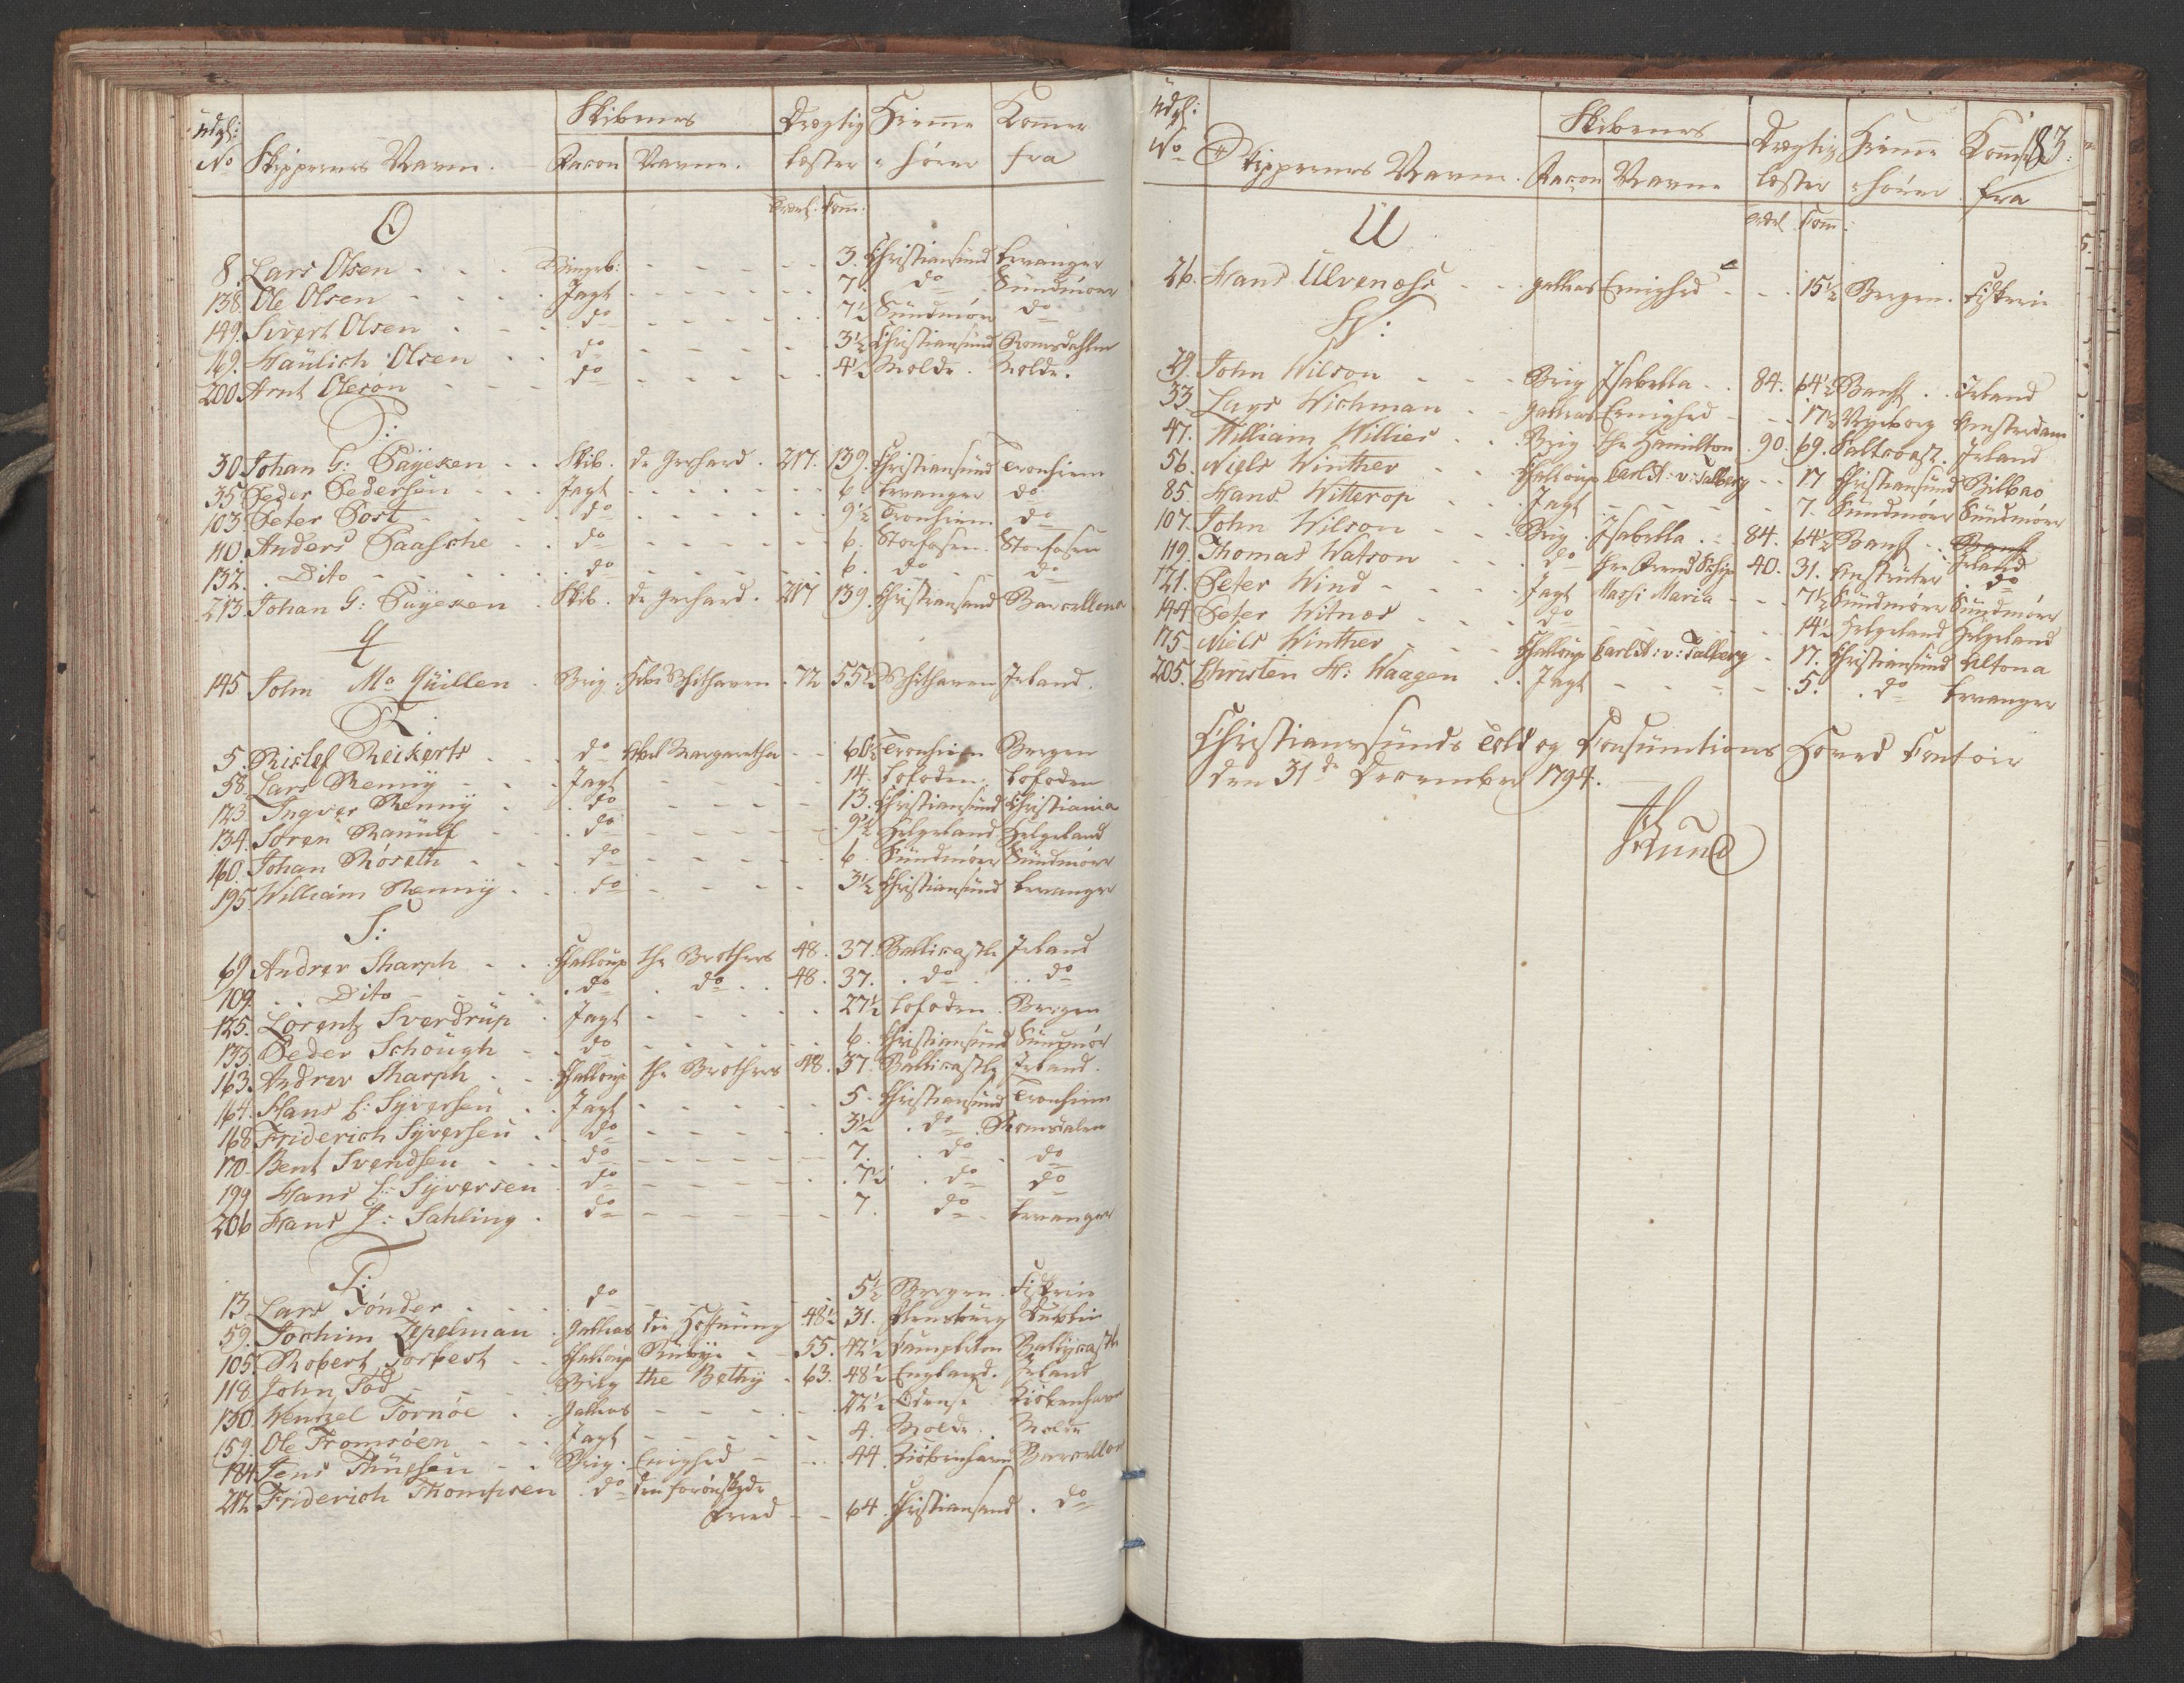 Udgl: Skibenes Drægtig Hiemme Kommer
No Skippernes Navne. Facon Navne. læster hører fra
Træel. Com:
O
8. Lars Olsen - - - - - - 3. Christiansund Levanger
138. Ole Olsen - - Jagt - - - 7. do Sundmoer
149. Sivert Olsen - - do - - - 7½ Sundmør do
169. Haülich Olsen - - do - - - 3½ Christiansund Romsdahlen
200 Arnt Oleson - - do - - - 4½ Molde. Molde.
P:
30 Johan G: Päyeken - - Skib. de Gerhard. 217. 139. Christiansund Tronhiem
35 Peder Pedersen - - Jagt - - - 6. Levanger do
103 Peter Post - - do - - - 9½ Tronhiem do
110. Anders Paasche - - do - - - 6. Storfosen. Storfosen
132. Dito - - do - - - 6. do do
213. Johan G: Päyeken . Skib. de Gerhard. 217 139. Christiansand Barcellona
Q
145 John Mc Qüillen . Brig. Withaven - 72 55½ Withaven Irland.
R
5. Rislef Reickerts - - do Margaretha - - 60½ Tronhiem Bergen
58. Lars Remmy - - Jagt - - 14. Lofoden. Lofoden
123. Ingver Remmy - do - - 13. Christiansund Christiania
134. Soren Ranülf - - do - - 9½ Helgeland Helgeland
160. Johan Röseth - - do - - 6. Sündmöer Sündmöer
195. William Remmy - - do - - 3½ Christiansund Levanger
S:
69 Andrew Sharph - - Challoup the Brothers 48. 37. Ballicastle Irland
109. Dito - - do do 48. 37. do do
125. Lorentz Sverdrup - Jagt - - 27½ Lofoden. Bergen
135. Peder Schough - - do - - 6. Christiansund Sunmör
163. Andrew Sharph - - Challoup the Brothers 48. 37. Ballicastle Irland.
164. Hans L: Syversen - - Jagt - - 5. Christiansund Tronhiem
168 Friderich Syversen - do - - 3½ do Romsdalen
170. Bent Svendsen - - do - - 7. do do
199 Hans L: Syversen do - - 7½ do do
206 Hans J: Sahling . do - - 7. do Levanger
T:
13. Lars Tönder - - do - - 5½ Bergen. Fiskerie
59. Jochim Tepelman . Gallias die Hoffnung 48½ 31. Flensburg Dublin
105. Robert Torbert - - Challoup Rubye - - 55. 42½ Campleton Ballycastle
118. John Tod - - Brig the Bethy . 63. 48½ England. Irland
130. Wentzel Tornöe - - Gallias - - 22½ Odense Kiöbenhavn
159. Ole Tromsöen - - Jagt - - 4. Molde. Molde
184. Jens Thuesen - - Brig. Enighed - - 44 Kiöbenhavn Barcellon
212 Friderich Thompsen . do den forönskede
Fred - - 64. Christiansand . do
Udgl: Skibenes Drægtig Hiemme Kommer 183.
No Skippernes Navne. Facon Navne læster hører fra
Træel Com:
U
26. Hans Ulvenæss - - Gallias Enighed - - 15½ Bergen. Fiskerie
W:
29. John Wilson - - - Brig Isabella - - 84. 64½ Banf . . Irland
33. Lars Wichman - - Gallias Enighed - - 17½ Nyeborg Amsterdam
47. William Willies - - Brig the Hamilton . 90. 69. Saltcoast. Irland
56. Niels Winther - - Challoup Carl A: v: Talberg - - 17 Christiansund Bilbao
85. Hans Witterop - - Jagt - - - 7. Sundmoer Sündmöer
107. John Wilson - - - Brig. Isabella . . . 84. 64½ Banf . . Banf Irland
119. Thomas Watson - - do the Frend Schip 40. 31. Anstruter . do
121. Peter Wind - - - Jagt Massi Maria - - 7½ Sündmöer Sündmöer
144. Peter Witnes - - - do - - - 14½ Helgeland Helgeland
175. Niels Winther - - Challoup Carl A: v: Talberg - 17. Christiansund Altona
205. Christen H: Waagen - - Jagt - - - 5. do Levanger
Christianssunds Told og Consumtions Hoved Contoir
den 31de December 1794.